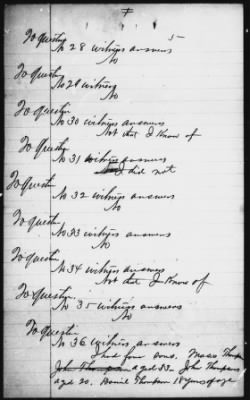 5
To Questn
No 28 witness answers
No
To Questn
No 29 witness
No
To Questn
No 30 witness answers
Not that I Know of
To Questn
No 31 witness answers
I did not
To Questn
No 32 witness answers
No
To Questn
No 33 witness answers
No
To Questn
No 34 witness answers
Not that I Know of
To Questn
No 35 witness answers
No
To Questn
No 36 witness answers
I had four sons. Moses
aged 33. John Thompson
aged 20. Daniel Thompson 18 years of age